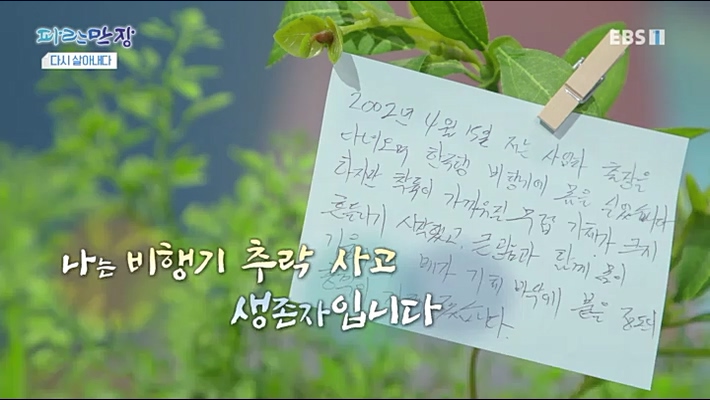 파란만장
다시 살아내다
EBS1
2002년 4월 15일 저는 사업차 출장을
다녀오며 한국행 비행기에 몸을 실었습니다
하지만 착륙이 가까워진 무렵 기체가 크게
흔들리기 시작했고, 큰 굉음과 함께 몸이
기체 바닥에 붙을 정도의
나는 비행기 추락 사고
생존자입니다